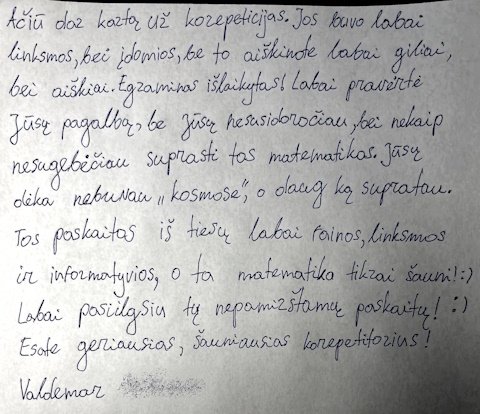 Ačiū dar kartą už korepeticijas. Jos buvo labai
linksmos, bei įdomios, be to aiškinote labai giliai,
bei aiškiai. Egzaminas išlaikytas! Labai pravertė
Jūsų pagalba, be Jūsų nesusidoročiau, bei nekaip
nesugebėčiau suprasti tas matematikas. Jūsų
dėka nebuvau „kosmose“, o daug ką supratau.
Tos paskaitas iš tiesų labai fainos, linksmos
ir informatyvios, o ta matematika tikrai šauni! :)
Labai pasiilgsiu tų nepamirštamų paskaitų! :)
Esate geriausias, šauniausias korepetitorius!
Valdemar